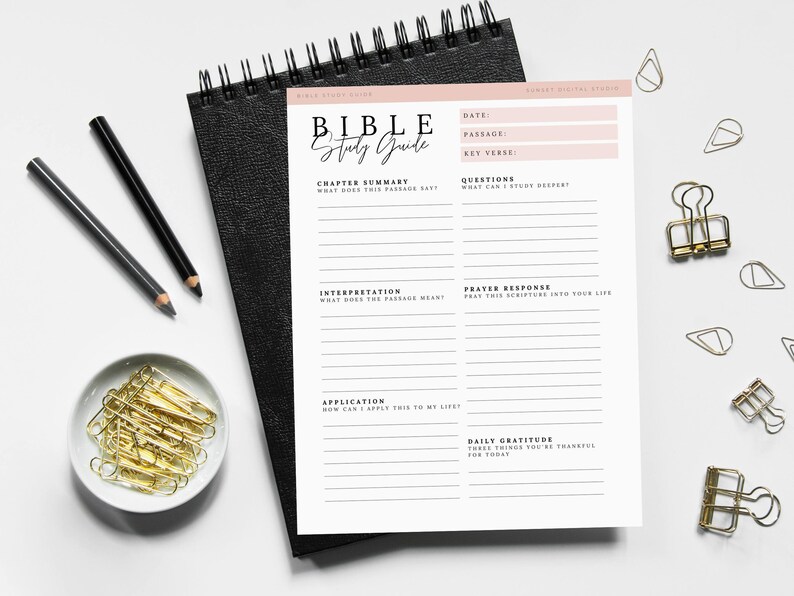 BIBLE STUDY GUIDE
SUNSET DIGITAL STUDIO
BIBLE
Study Guide
DATE:
PASSAGE:
KEY VERSE:
CHAPTER SUMMARY
WHAT DOES THIS PASSAGE SAY?
INTERPRETATION
WHAT DOES THE PASSAGE MEAN?
APPLICATION
HOW CAN I APPLY THIS TO MY LIFE?
QUESTIONS
WHAT CAN I STUDY DEEPER?
PRAYER RESPONSE
PRAY THIS SCRIPTURE INTO YOUR LIFE
DAILY GRATITUDE
THREE THINGS YOU'RE THANKFUL
FOR TODAY